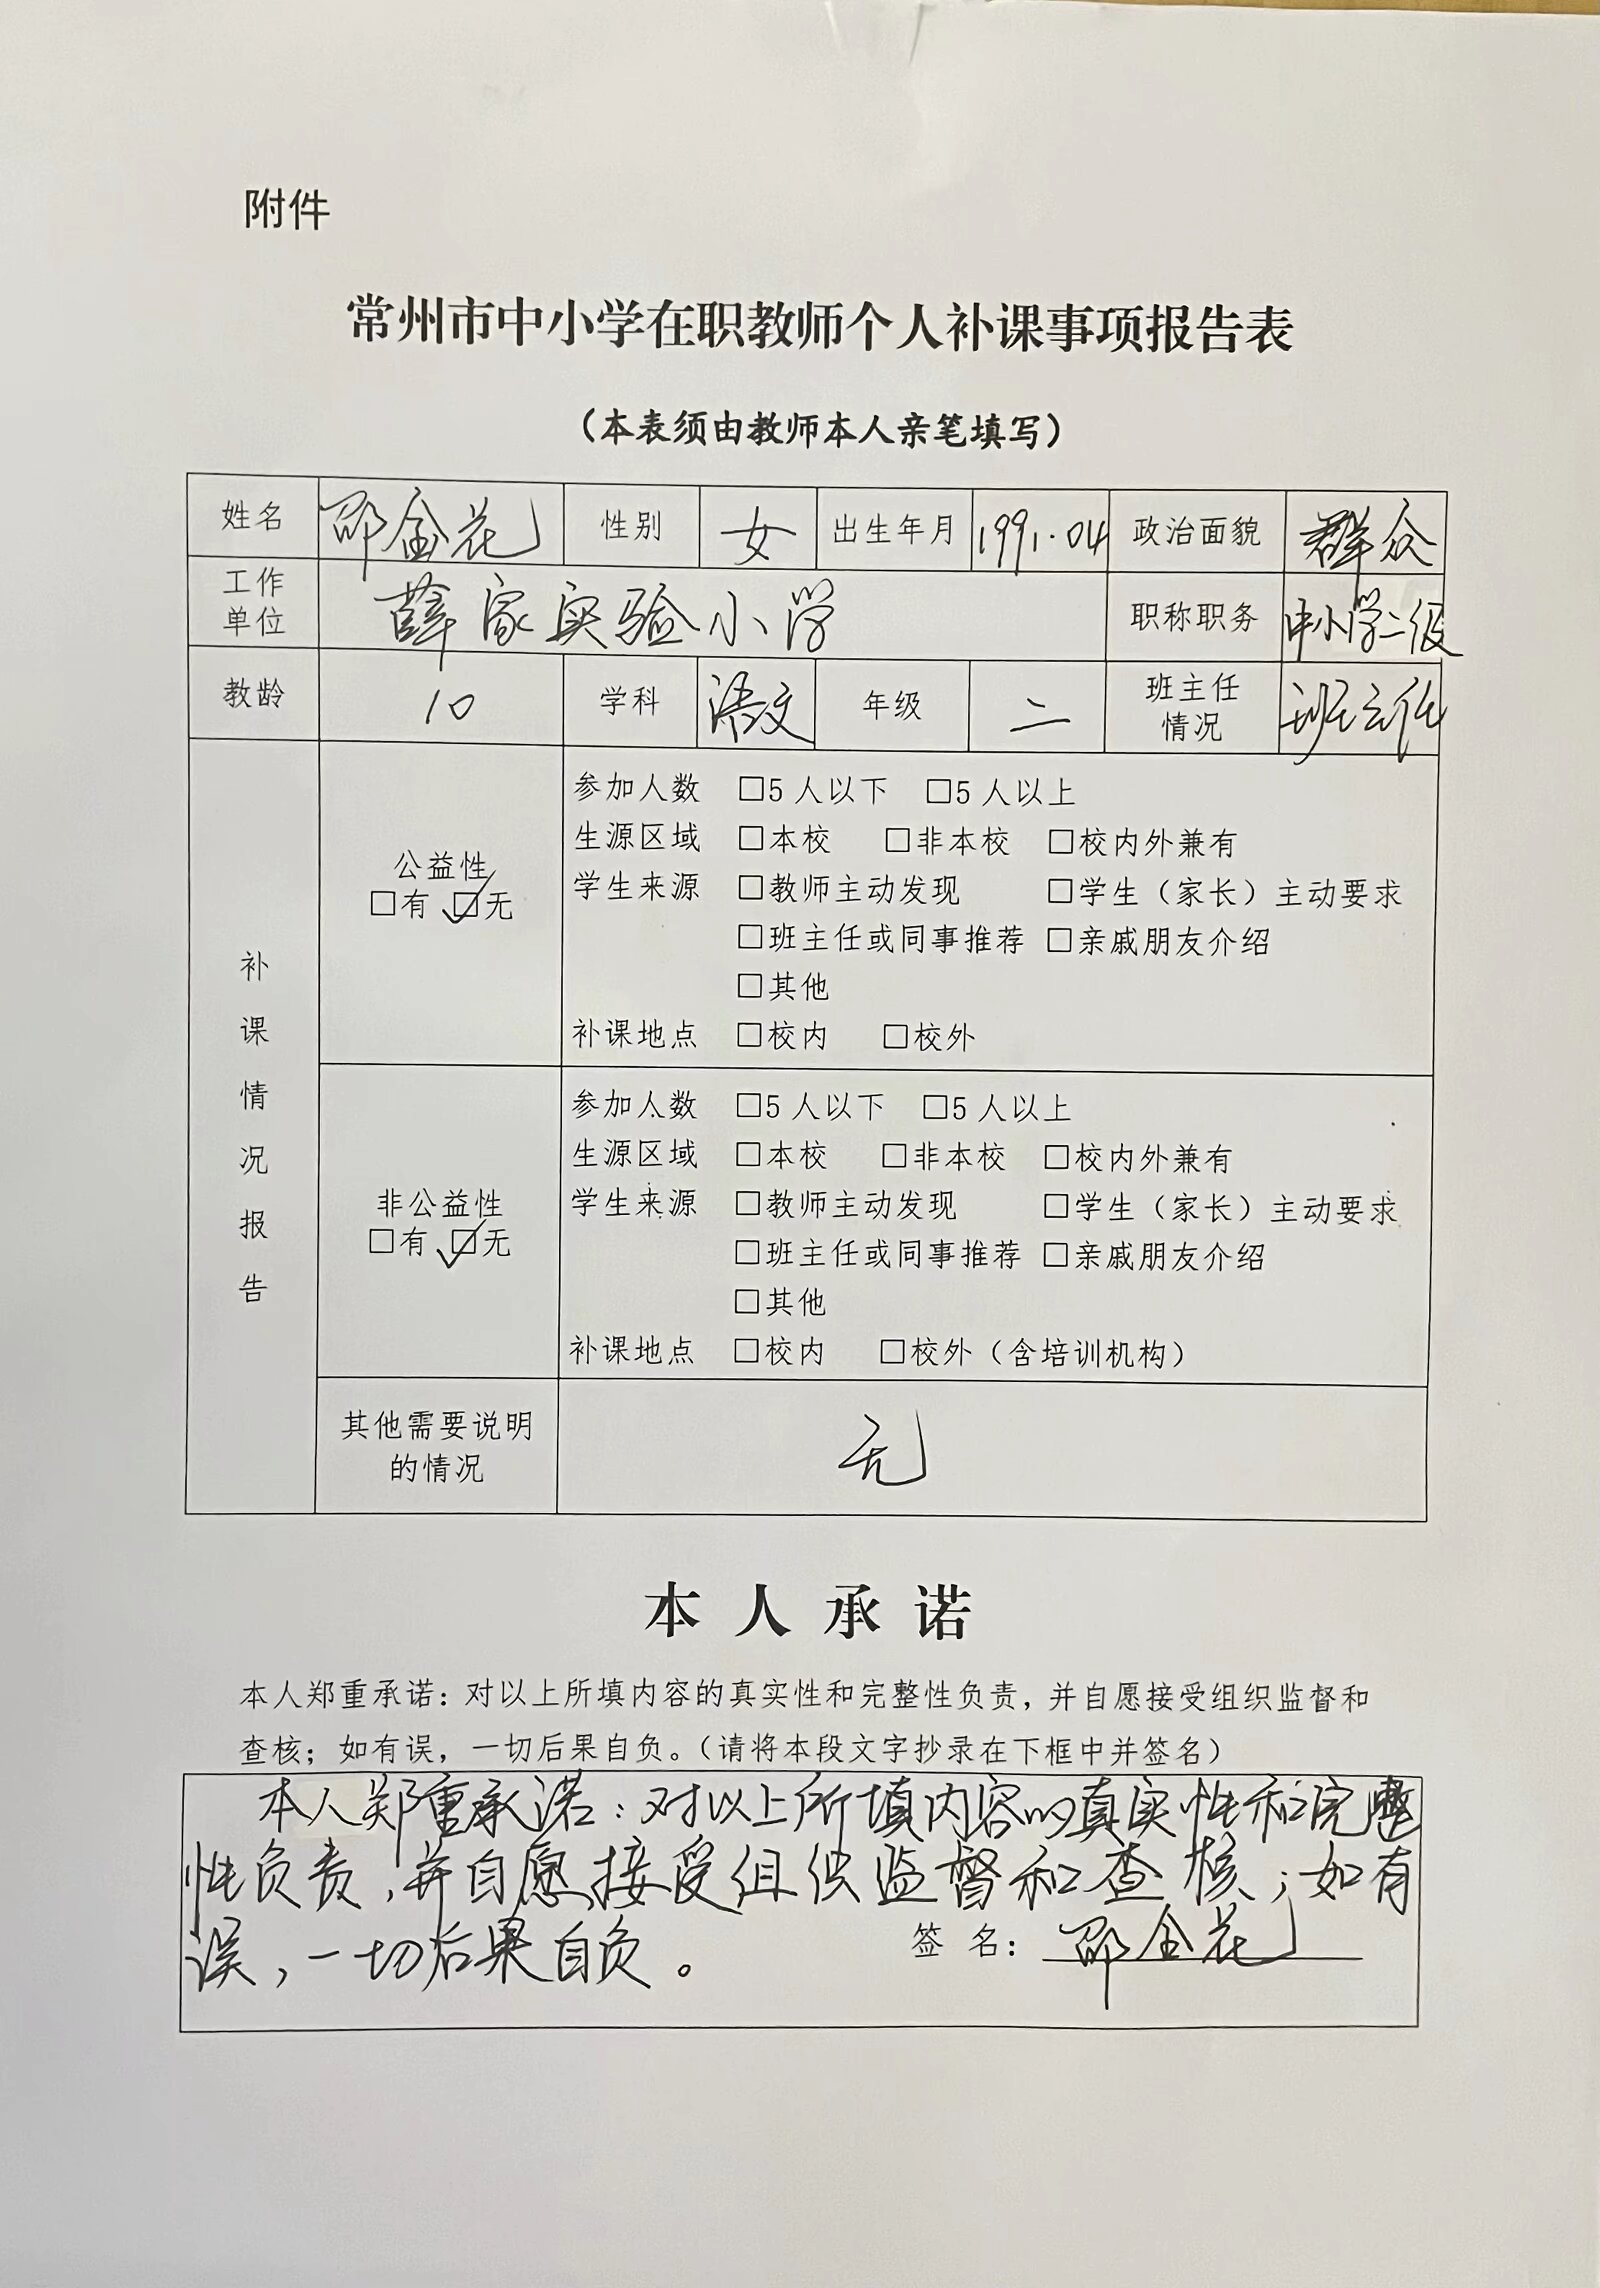 附件
常州市中小学在职教师个人补课事项报告表
（本表须由教师本人亲笔填写）
姓名 邵金花 性别 女 出生年月 1991.04 政治面貌 群众
工作单位 薛家实验小学 职称职务 中小学二级
教龄 10 学科 语文 年级 二 班主任情况 班主任
补课情况报告
公益性
□有 ☑无
参加人数 □5人以下 □5人以上
生源区域 □本校 □非本校 □校内外兼有
学生来源 □教师主动发现 □学生（家长）主动要求
□班主任或同事推荐 □亲戚朋友介绍
□其他
补课地点 □校内 □校外
非公益性
□有 ☑无
参加人数 □5人以下 □5人以上
生源区域 □本校 □非本校 □校内外兼有
学生来源 □教师主动发现 □学生（家长）主动要求
□班主任或同事推荐 □亲戚朋友介绍
□其他
补课地点 □校内 □校外（含培训机构）
其他需要说明
的情况
无
本人承诺
本人郑重承诺：对以上所填内容的真实性和完整性负责，并自愿接受组织监督和
查核；如有误，一切后果自负。（请将本段文字抄录在下框中并签名）
本人郑重承诺：对以上所填内容的真实性和完整
性负责，并自愿接受组织监督和查核；如有
误，一切后果自负。
签 名：邵金花